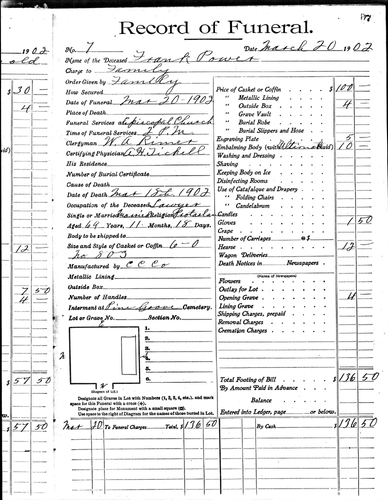 197
Record of Funeral.
1902
No. 7
Date March 20 1902
old
Name of the Deceased Frank Power
Charge to Family
Order Given by Family
How Secured
Date of Funeral Mar 20 1902
Place of Death
Funeral Services at Episcopal Church
Time of Funeral Services 2 P.M
Clergyman W. A. Rimer
Certifying Physician
His Residence
Number of Burial Certificate
Cause of Death
Date of Death Mar 18th 1902
Occupation of the Deceased Lawyer
Single or Married Married Religion
Aged 64 Years, 11 Months, 18 Days
Body to be shipped to
Size and Style of Casket or Coffin 6-0
No 803
Manufactured by C C Co
Metallic Lining
Outside Box
Number of Handles
Interment at Pine Grove Cemetery.
Lot or Grave No. Section No.
1.
2.
3.
4.
5.
6.
Diagram of Lot
Designate all Graves in Lot with Numbers (1, 2, 3, 4, etc.), and mark
space for this Funeral with a cross
Designate place for Monument with a small square
Use space to the right of Diagram for the names of those buried in Lot.
Price of Casket or Coffin $ 100
" Metallic Lining
" Outside Box 4
" Grave Vault
" Burial Robe
Burial Slippers and Hose
Engraving Plate 5
Embalming Body (with Fluid) 10
Washing and Dressing
Shaving
Keeping Body on Ice
Disinfecting Rooms
Use of Catafalque and Drapery
" Folding Chairs
" Candelabrum
Candles
Gloves 1 50
Crape
Number of Carriages @$
Hearse 12
Wagon Deliveries
Death Notices in Newspapers
(Names of Newspapers)
Flowers
Outlay for Lot
Opening Grave 4
Lining Grave
Shipping Charges, prepaid
Removal Charges
Cremation Charges
Total Footing of Bill $ 136 50
By Amount Paid in Advance
Balance
Entered into Ledger, page or below.
Mar 20 To Funeral Charges Total, $ 136 50
By Cash $ 136 50
$ 30
4
12
7 50
4
$ 57 50
$ 57 50